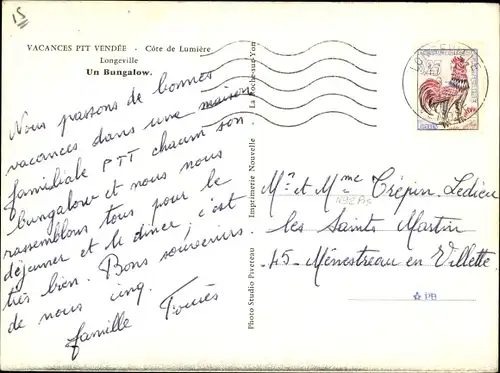 15
VACANCES PTT VENDÉE - Côte de Lumière
Longeville
Un Bungalow.
Nous passons de bonnes
vacances dans une maison
familiale PTT chacun son
bungalow et nous nous
rassemblons tous pour le
déjeuner et le dîner, c'est
très bien. Bons souvenirs
de nous cinq.
famille
Photo Studio Piveteau - Imprimerie Nouvelle - La Roche-sur-Yon
Mr et Mme Trépin Ledieu
les Saints Martin
45 - Ménestreau en Villette